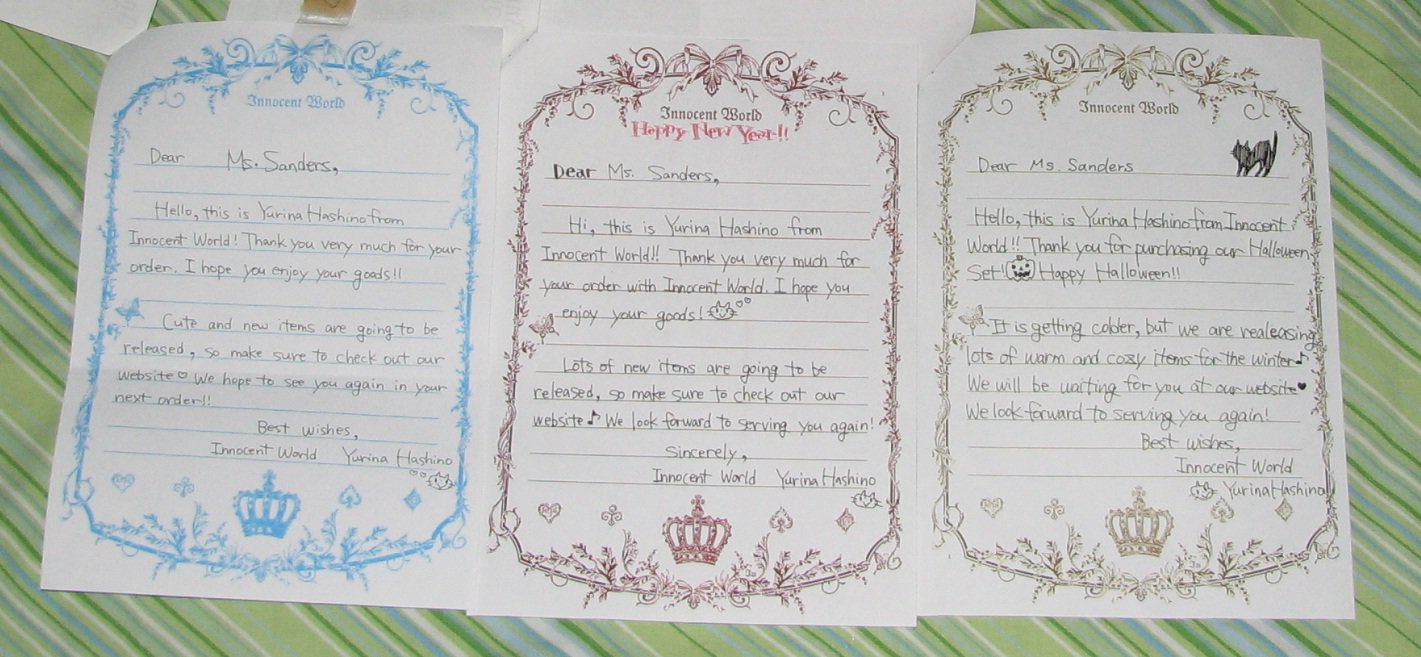 Innocent World
Dear Ms. Sanders,
Hello, this is Yurina Hashino from
Innocent World! Thank you very much for your
order. I hope you enjoy your goods!!
Cute and new items are going to be
released, so make sure to check out our
website♡ We hope to see you again in your
next order!!
Best wishes,
Innocent World Yurina Hashino
Innocent World
Happy New Year!!
Dear Ms. Sanders,
Hi, this is Yurina Hashino from
Innocent World!! Thank you very much for
your order with Innocent World. I hope you
enjoy your goods!
Lots of new items are going to be
released, so make sure to check out our
website♪ We look forward to serving you again!
Sincerely,
Innocent World Yurina Hashino
Innocent World
Dear Ms. Sanders
Hello, this is Yurina Hashino from Innocent
World!! Thank you for purchasing our Halloween
Set! Happy Halloween!!
It is getting colder, but we are realeasing
lots of warm and cozy items for the winter♪
We will be waiting for you at our website♥
We look forward to serving you again!
Best wishes,
Innocent World
Yurina Hashino